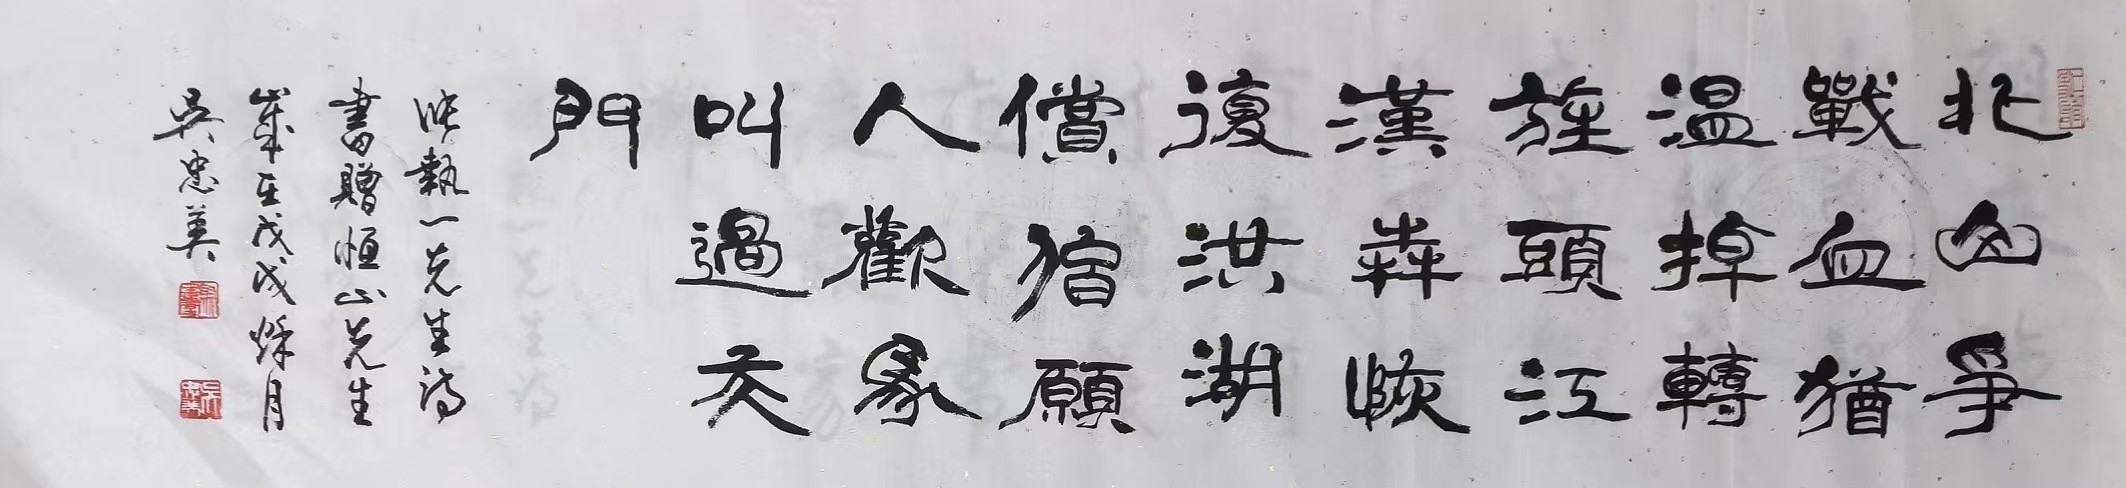 北山爭
戰血猶
溫掉轉
旌頭江
漢犇恢
復洪湖
償宿願
人歡馬
叫過天
門
張執一先生詩
書贈恒山先生
歲在戊戌燦月
吳忠美